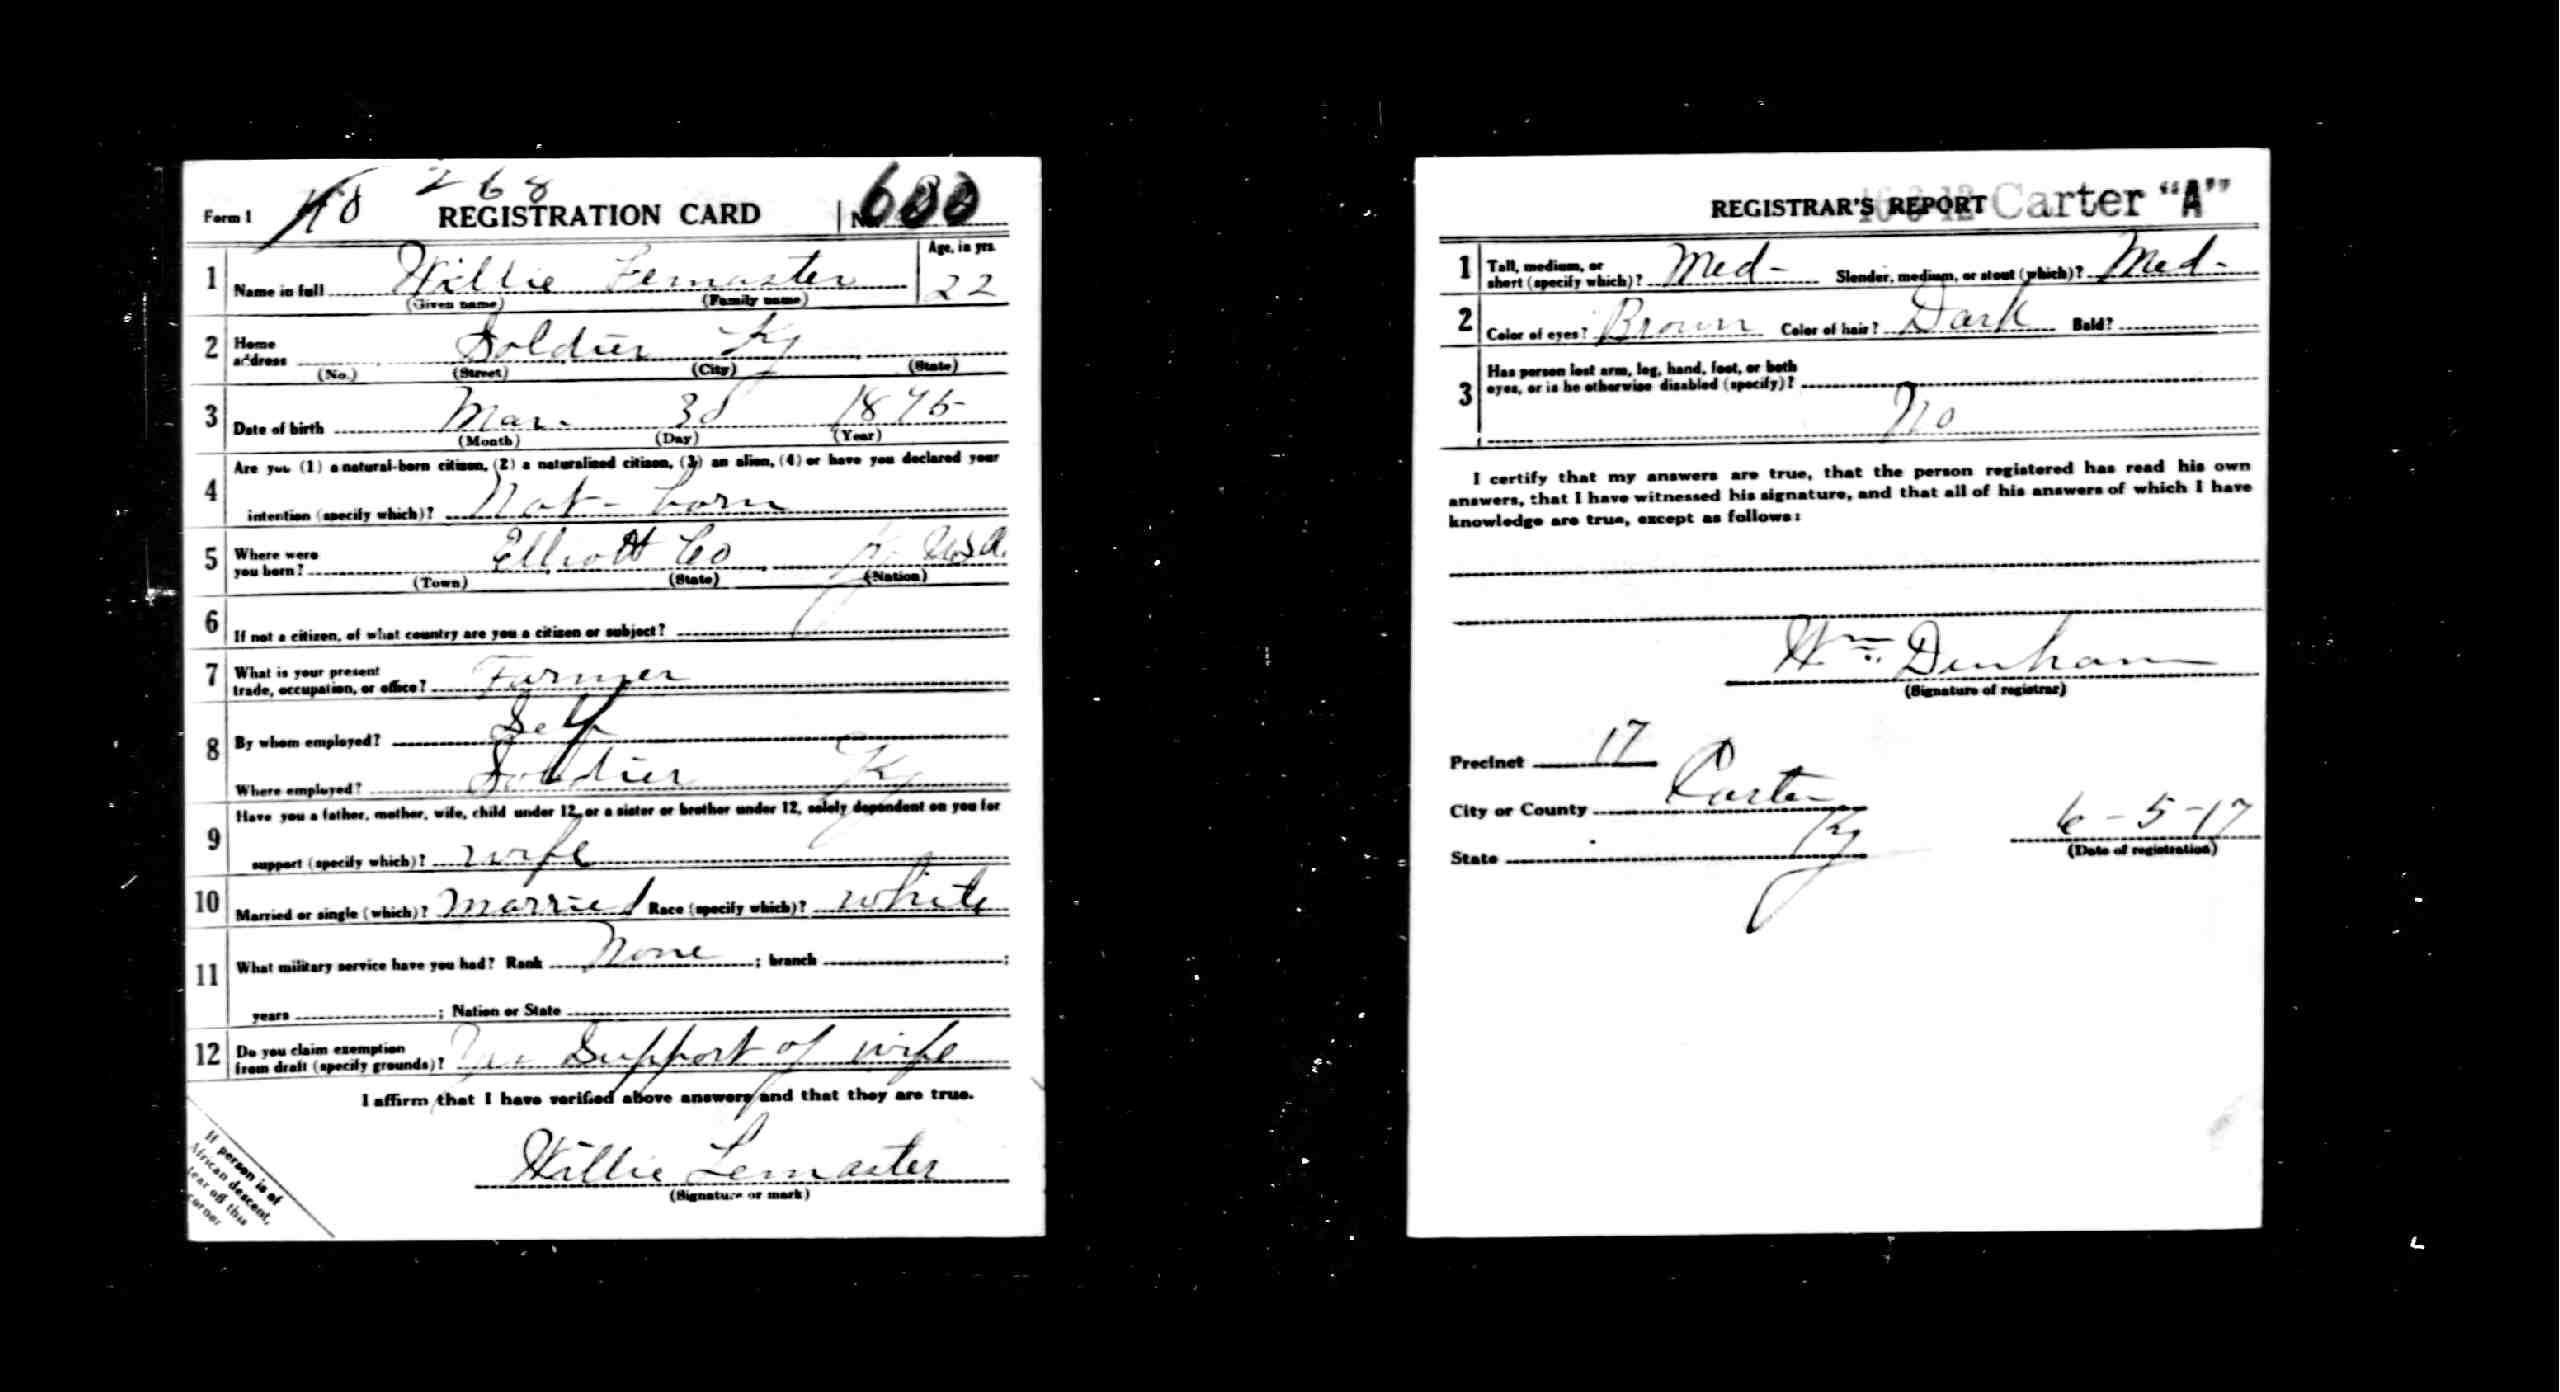 268
Form 1 REGISTRATION CARD No.
Age, in yrs.
1 Name in full Willie Lemaster 22
(Given name) (Family name)
2 Home address Soldier Ky
(No.) (Street) (City) (State)
3 Date of birth Mar. 30 1895
(Month) (Day) (Year)
Are you (1) a natural-born citizen, (2) a naturalized citizen, (3) an alien, (4) or have you declared your
4 intention (specify which)? Nat-born
5 Where were you born? Elliott Co Ky U.S.A.
(Town) (State) (Nation)
6 If not a citizen, of what country are you a citizen or subject?
7 What is your present trade, occupation, or office? Farmer
8 By whom employed? Self
Where employed? Soldier Ky
Have you a father, mother, wife, child under 12, or a sister or brother under 12, solely dependent on you for
9 support (specify which)? wife
10 Married or single (which)? Married Race (specify which)? White
11 What military service have you had? Rank None ; branch ;
years ; Nation or State
12 Do you claim exemption from draft (specify grounds)? Yes Support of wife
I affirm that I have verified above answers and that they are true.
Willie Lemaster
(Signature or mark)
If person is of
African descent,
tear off this
corner
REGISTRAR'S REPORT Carter "A"
1 Tall, medium, or short (specify which)? Med- Slender, medium, or stout (which)? Med-
2 Color of eyes? Brown Color of hair? Dark Bald?
Has person lost arm, leg, hand, foot, or both
3 eyes, or is he otherwise disabled (specify)?
No
I certify that my answers are true, that the person registered has read his own
answers, that I have witnessed his signature, and that all of his answers of which I have
knowledge are true, except as follows:
Wm Denham
(Signature of registrar)
Precinct 17
City or County Carter
State Ky 6-5-17
(Date of registration)